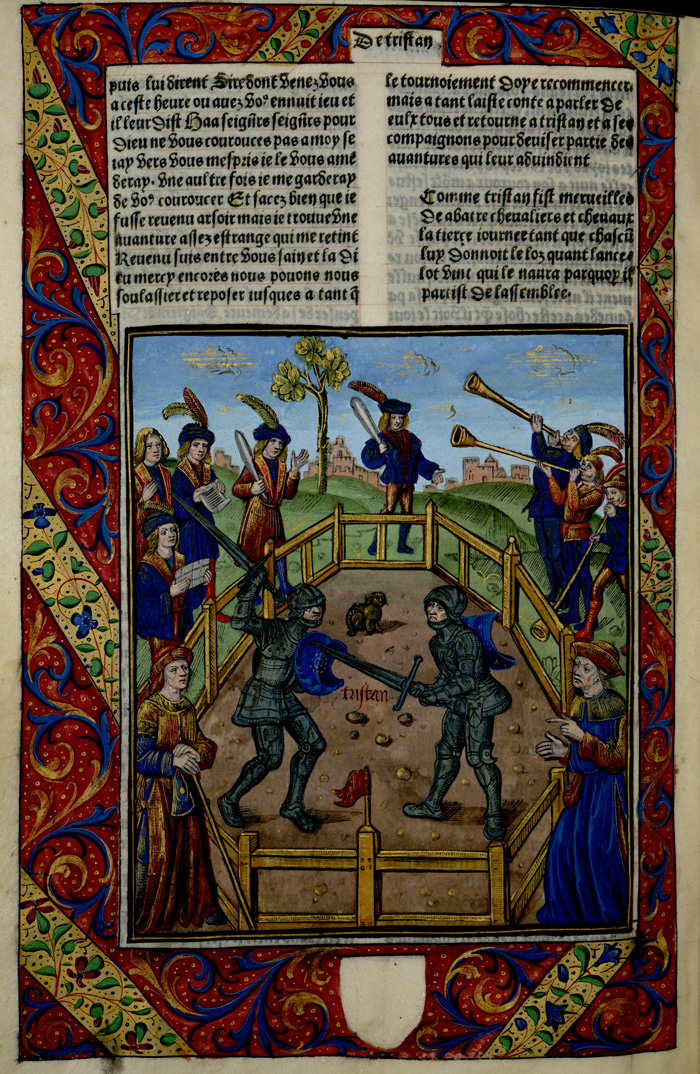 De tristan
puis lui dirent Sire dont venez vous
a ceste heure ou auez voꝰ ennuit ieu et
il leur dist Haa seigñrs seigñrs pour
Dieu ne vous courouces pas a moy se
iay vers vous mespris ie le vous amē
deray. vne aultre fois ie me garderay
de voꝰ couroucer Et sacez bien que ie
fusse reuenu arsoir mais ie trouue vne
auanture assez estrange qui me retint
Reuenu suis entre vous sain et la di
eu mercy encores nous pouons nous
soulassier et reposer iusques a tant q̃
le tournoiement doye recommencer.
mais a tant laist e conte a parler de
eulx tous et retourne a tristan et a ses
compaignons pour deuiser partie des
auantures qui leur aduindient
Comme tristan fist merueilles
de abatre cheualiers et cheuaux
la tierce iournee tant que chascū
luy donnoit le loz quant lance
lot vint qui le naura parquoy il
partist de lassemblee.
tristan